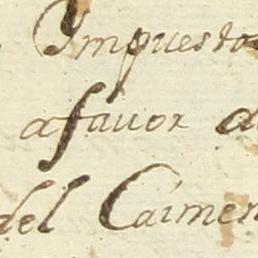 Impuesto
afavor d
del Caimen